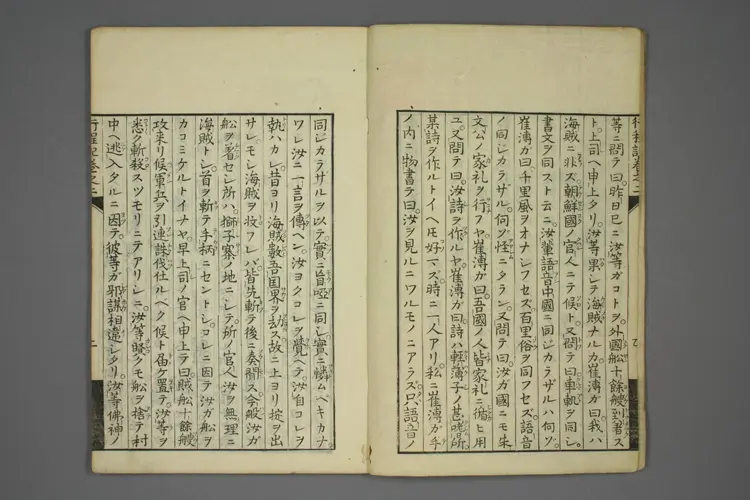 等ニ問テ曰昨日巳ニ汝等ガコトヲ外國船十餘艘到着ス
ト上司ヘ申上タリ汝等果シテ海賊ナルカ崔溥ガ曰我ハ
海賊ニ非ス朝鮮國ノ官人ニテ候ト又問テ曰車軌ヲ同シ
書文ヲ同スト云ニ汝輩語音中國ニ同ジカラザルハ何ゾ
崔溥ガ曰千里風ヲオナシフセズ百里俗ヲ同フセズ語音
ノ同ジカラザル何ゾ怪ニタラン又問テ曰汝ガ國ニモ朱
文公ノ家礼ヲ行フヤ崔溥ガ曰吾國ノ人皆家礼ニ循ヒ用
ユ又問テ曰汝詩ヲ作ルヤ崔溥ガ曰詩ハ輕薄子ノ甚
某詩ヲ作ルトイヘ𪜈好マズ時ニ一人アリ私ニ崔溥ガ手
ノ内ニ物書テ曰汝ヲ見ルニワルモノニアラズ只語音ノ
同ジカラザルヲ以テ實ニ盲啞ニ同シ實ニ憐ムベキカナ
ワレ汝ニ一言ヲ傳ヘン汝ヨクコレヲ覺ヘテ汝自コレヲ
執ハカレ昔ヨリ海賊數吾国界ヲ刧ス故ニ上ヨリ掟ヲ出
サレモシ海賊ヲ收フレバ皆先斬テ後ニ奏聞ス今般汝ガ
船ヲ着セシ所ハ獅子寨ノ地ニシテ所ノ官人汝ヲ無理ニ
海賊トシ首ヲ斬テ手柄ニセントシコレニ因テ汝ガ船ヲ
カコミケルトイナヤ早上司ノ官ヘ申上テ曰賊船十餘艘
攻来リ候軍兵ヲ引連誅伐仕ルベク候ト届ケ置テ汝等ヲ
悉ク斬殺スツモリニテアリシニ汝等賢クモ船ヲ捨テ村
中ヘ逃入タルニ因テ彼等ガ邪謀相違シタリ汝等佛神ノ